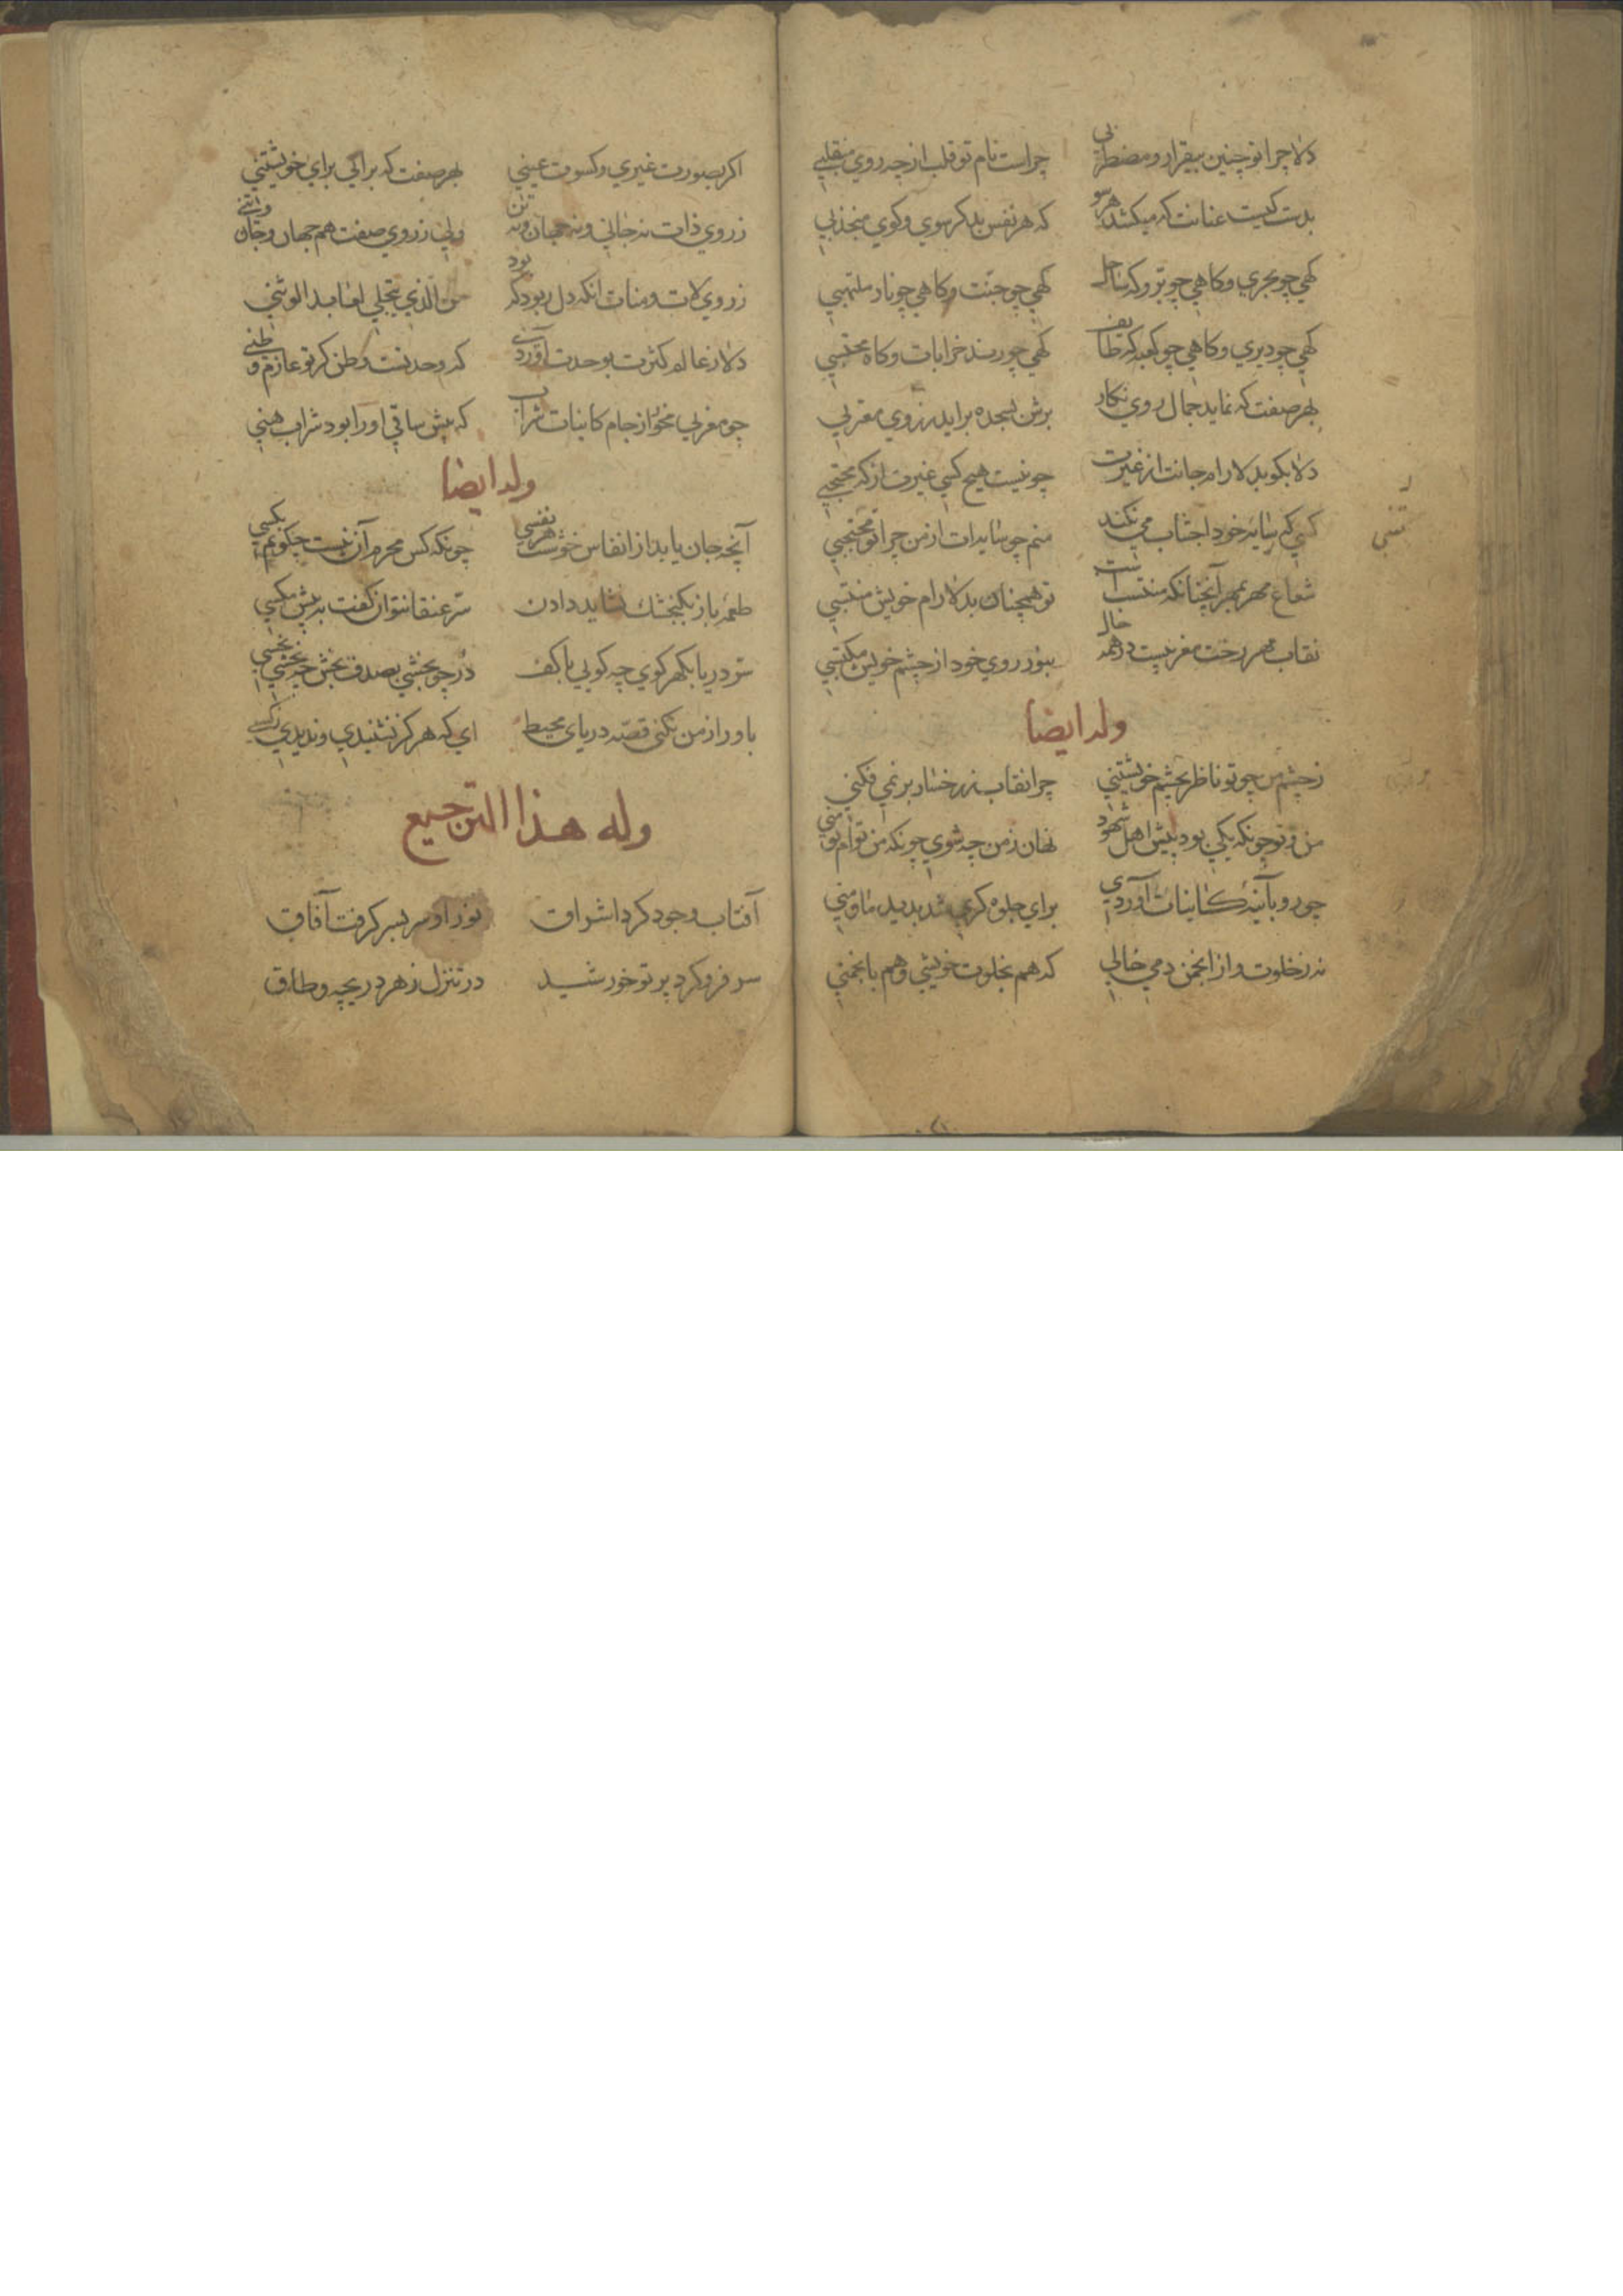 دلا چرا تو چنین بیقرار و مضطربی چراست نام تو قلب از چه روی منقلبی
بدست کیست عنانت که میکشد هرسو که هر نفس بدکر سوی و کوی منجذبی
کهی چو بحری و کاهی چو بر و که ساحل کهی چو جنت و کاهی چو نار ملتهبی
کهی چو دیری و کاهی چو کعبه که طایف کهی چو رند خرابات و کاه محتسبی
بهر صفت که نماید جمال روی نکار برش بسجده براید ز روی مغربی
دلا بکو بدلارام جانت از غیرت چو نیست هیچ کسی غیرت از که محتجبی
کسی که سایه خود اجتناب می نکند منم چو سایه ات از من چرا تو مجتنبی
تنبی
شعاع مهر بمهر آنچنانکه منتسب است تو همچنان بدلارام خویش منتسبی
نقاب مهر رخت مغربیست در همه حال بنور روی خود از چشم خویش مکتسبی
وله ایضا
ز چشم من چو تو ناظر بچشم خویشتنی چرا نقاب ز رخسار بر نمی فکنی
من و تو چونکه یکی بود پیش اهل شهود نهان ز من چه شوی چونکه من توام تو منی
چو رو بآینه کاینات آوردی برای جلوه کری شد بدید ما و منی
نه ز خلوت و از انجمن دمی خالی که هم بخلوت خویشی و هم بانجمنی
اکر بصورت غیری و کسوت عینی بهر صفت که برائی برای خویشتنی
ز روی ذات نه جانی و نه جهان و نه تن ولی ز روی صفت هم جهان و جان و تنی
ز روی لات و منات انکه دل ربود که بود من الذی یتجلی لعابد الوثنی
دلا ز عالم کثرت بوحدت آوردی که وحدتست وطن کر تو عازم وطنی
چو مغربی مخور از جام کاینات شراب که پیش ساقی او را بود شراب هنی
وله ایضا
آنچه جان یابد از انفاس خوشت هر نفسی چونکه کس محرم آن نیست چکویم بکسی
طعمه باز بکنجشک نشاید دادن سر عنقا نتوان کفت به پیش مکسی
سر دریا بکهر کوی چه کویی با کف در چو بخشی بصدف بخش چه بخشی بخسی
باور از من نکنی قصه دریای محیط ای که هرکز نشنیدی و ندیدی ارسی
وله هذا الترجیع
آفتاب وجود کرد اشراق نور او سر بسر کرفت آفاق
سر فرو کرد پرتو خورشید در تنزل ز هر دریچه و طاق